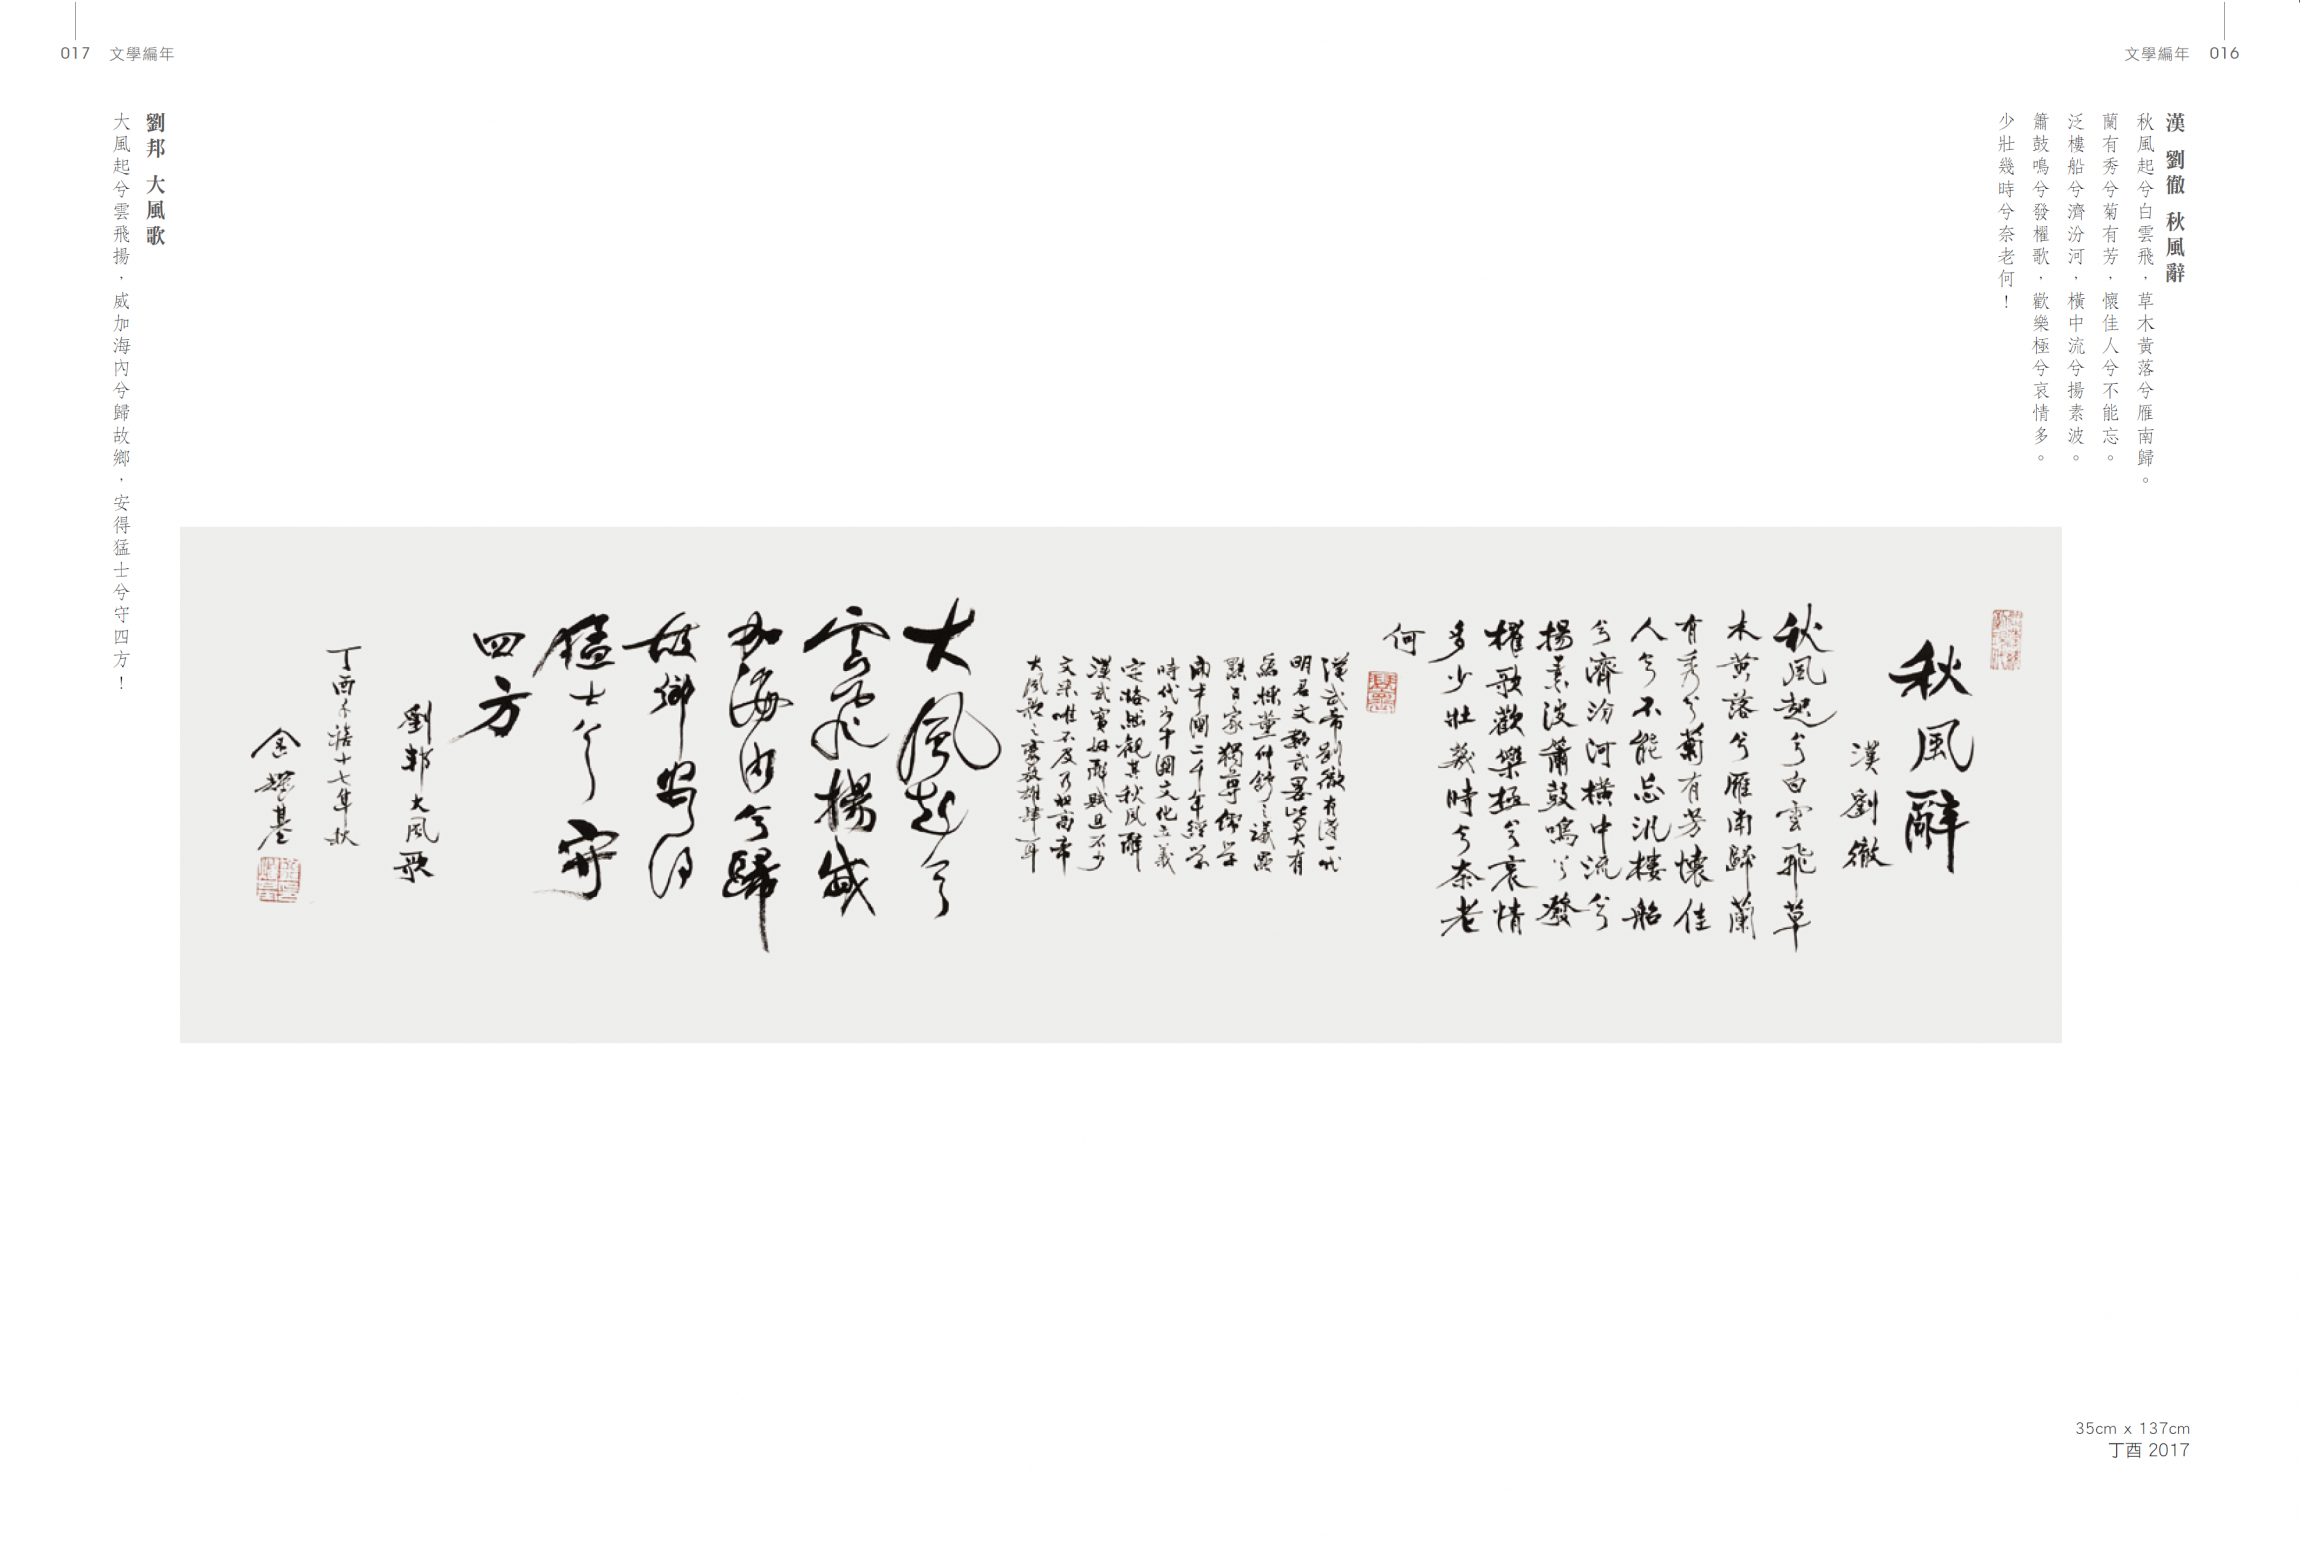 文學編年 016
漢 劉徹 秋風辭
秋風起兮白雲飛，草木黃落兮雁南歸。
蘭有秀兮菊有芳，懷佳人兮不能忘。
泛樓船兮濟汾河，橫中流兮揚素波。
簫鼓鳴兮發櫂歌，歡樂極兮哀情多。
少壯幾時兮奈老何！
秋風辭
漢劉徹
秋風起兮白雲飛草
木黃落兮雁南歸蘭
有秀兮菊有芳懷佳
人兮不能忘汎樓船
兮濟汾河橫中流兮
揚素波簫鼓鳴兮發
櫂歌歡樂極兮哀情
多少壯幾時兮奈老
何
漢武帝劉徹有漢一代
明君文韜武畧皆大有
為採董仲舒之議罷
黜百家獨尊儒學
開中國二千年經學
時代為中國文化立義
定格然觀其秋風辭
漢武實好辭賦且不少
文采唯不及乃祖高帝
大風歌之豪放雄肆耳
大風起兮
雲飛揚威
加海內兮歸
故鄉安得
猛士兮守
四方
劉邦大風歌
丁酉十七年秋
金耀基
35cm x 137cm
丁酉 2017
017 文學編年
劉邦 大風歌
大風起兮雲飛揚，威加海內兮歸故鄉，安得猛士兮守四方！